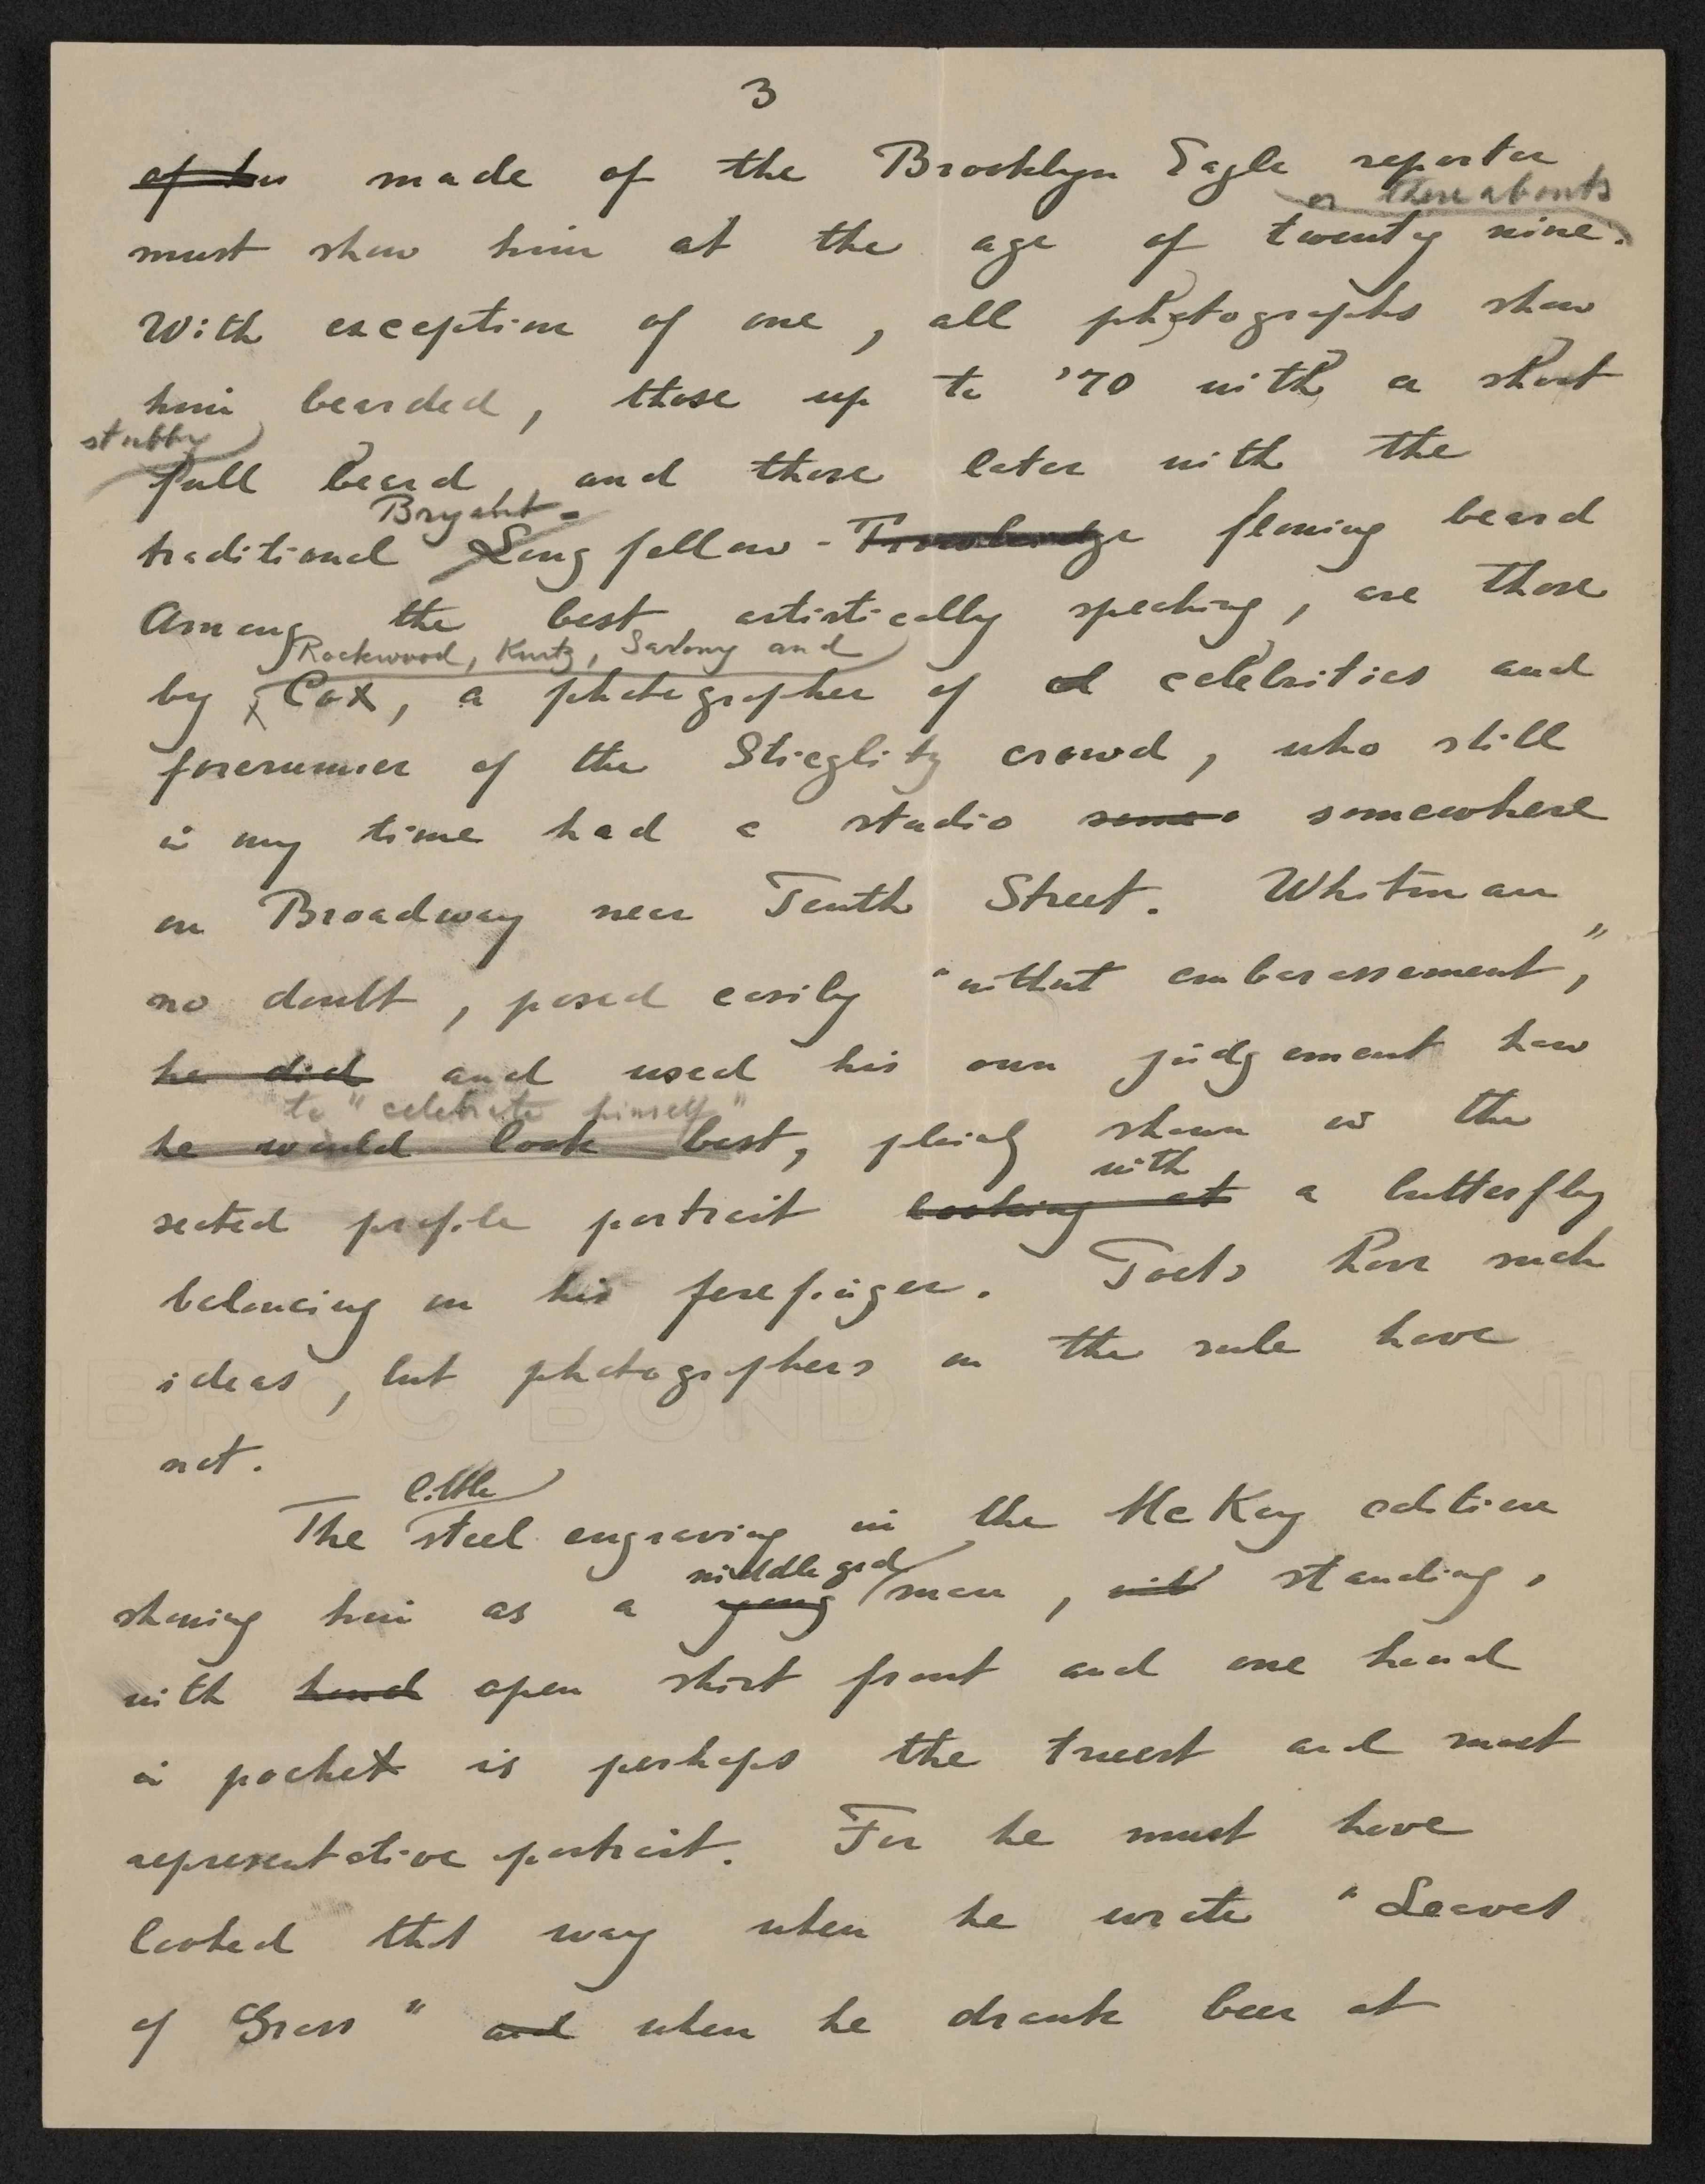 3
of his made of the Brooklyn Eagle reporter
or thereabouts
must show him at the age of twenty nine.
With exception of one, all photographs show
him bearded, those up to '70 with a short
stubby
full beard, and those later with the
Bryant-
traditional Longfellow-Trowbridge flowing beard
Among the best, artistically speaking, are those
Rockwood, Kurtz, Sarony and
by Cox, a photographer of cel celebrities and
forerunner of the Stieglitz crowd, who still
in my time had a studio some somewhere
on Broadway near Tenth Street. Whitman
no doubt, posed easily "without embarassement,"
he did and used his own judgement how
to "celebrate himself"
he would look best, plainly shown in the
with
seated profile portrait looking at a butterfly
balancing on his forefinger. Poets have such
ideas, but photographers on the rule have
not.
little
The steel engraving in the McKay edition
middle aged
showing him as a young man, with standing,
with hand open shirt front and one hand
in pocket is perhaps the truest and most
representative portrait. For he must have
looked that way when he wrote "Leaves
of Grass" and when he drank beer at
BROC BOND
NI